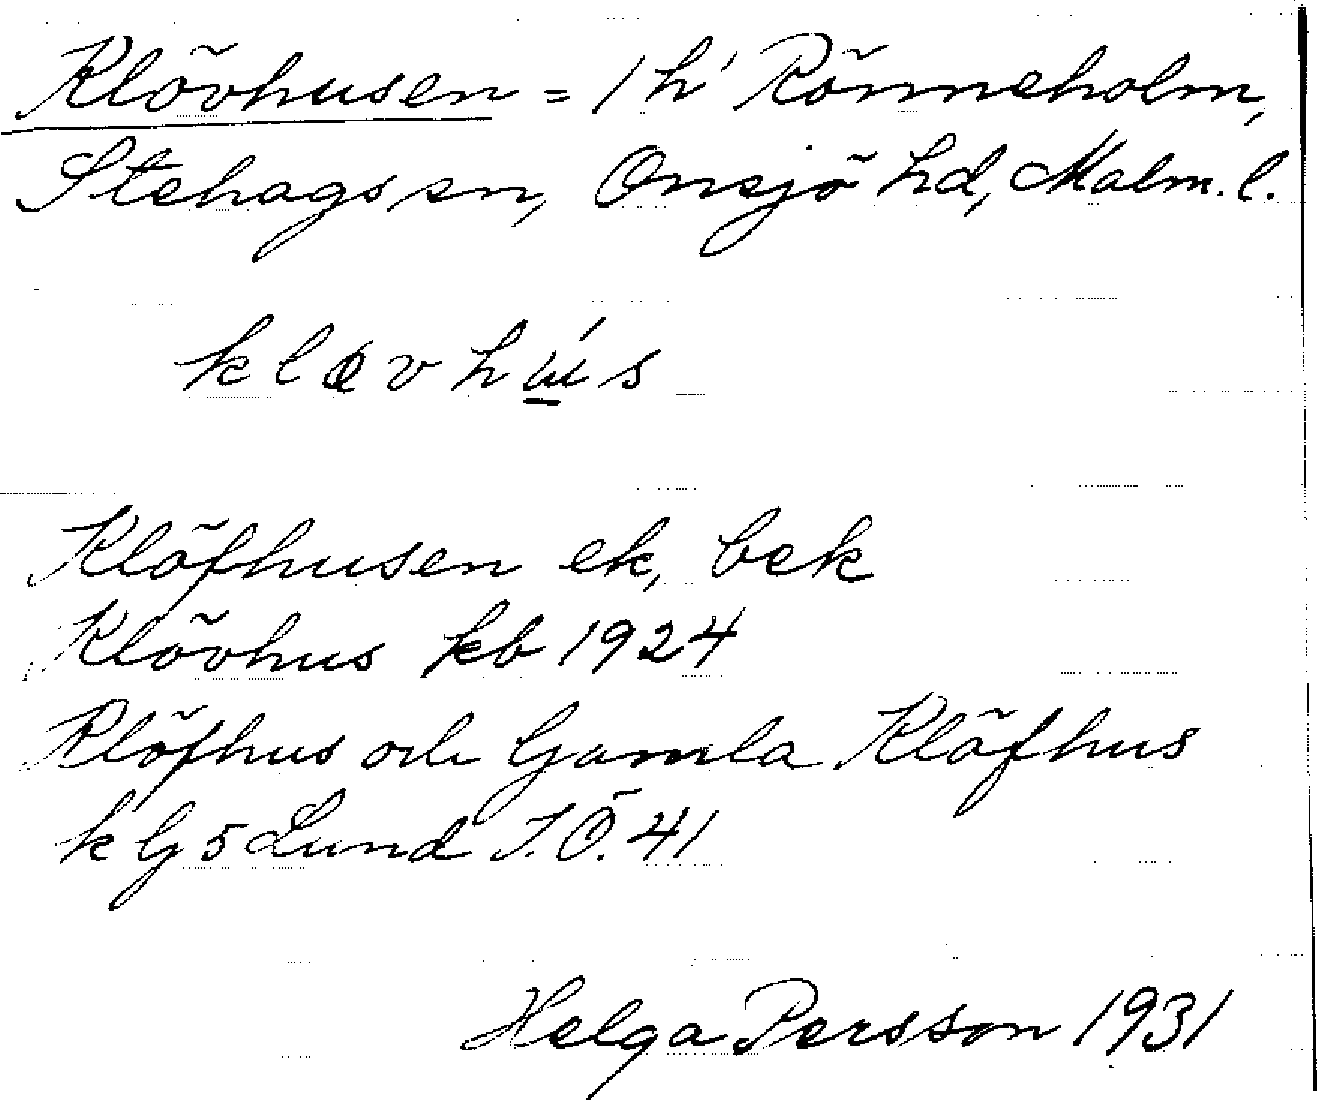 Klövhusen = 1 h' Rönneholm,
Stehags sn, Onsjö hd, Malm. l.
Klöfhusen ek, bek
Klövhus kb 1924
Klöfhus och Gamla Klöfhus
k G 5 Lund I.Ö. 41
Helga Persson 1931